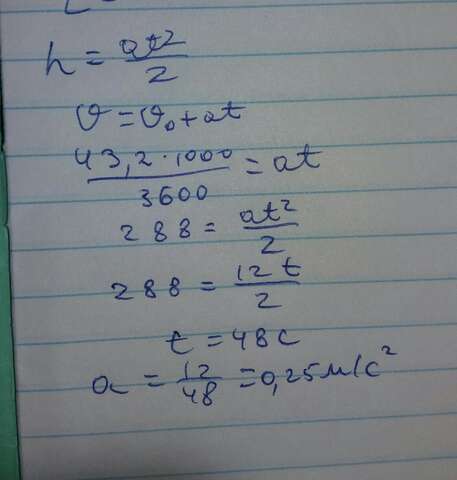 h = at²/2
v = v₀ + at
43,2 · 1000/3600 = at
288 = at²/2
288 = 12 t/2
t = 48 с
a = 12/48 = 0,25 м/с²